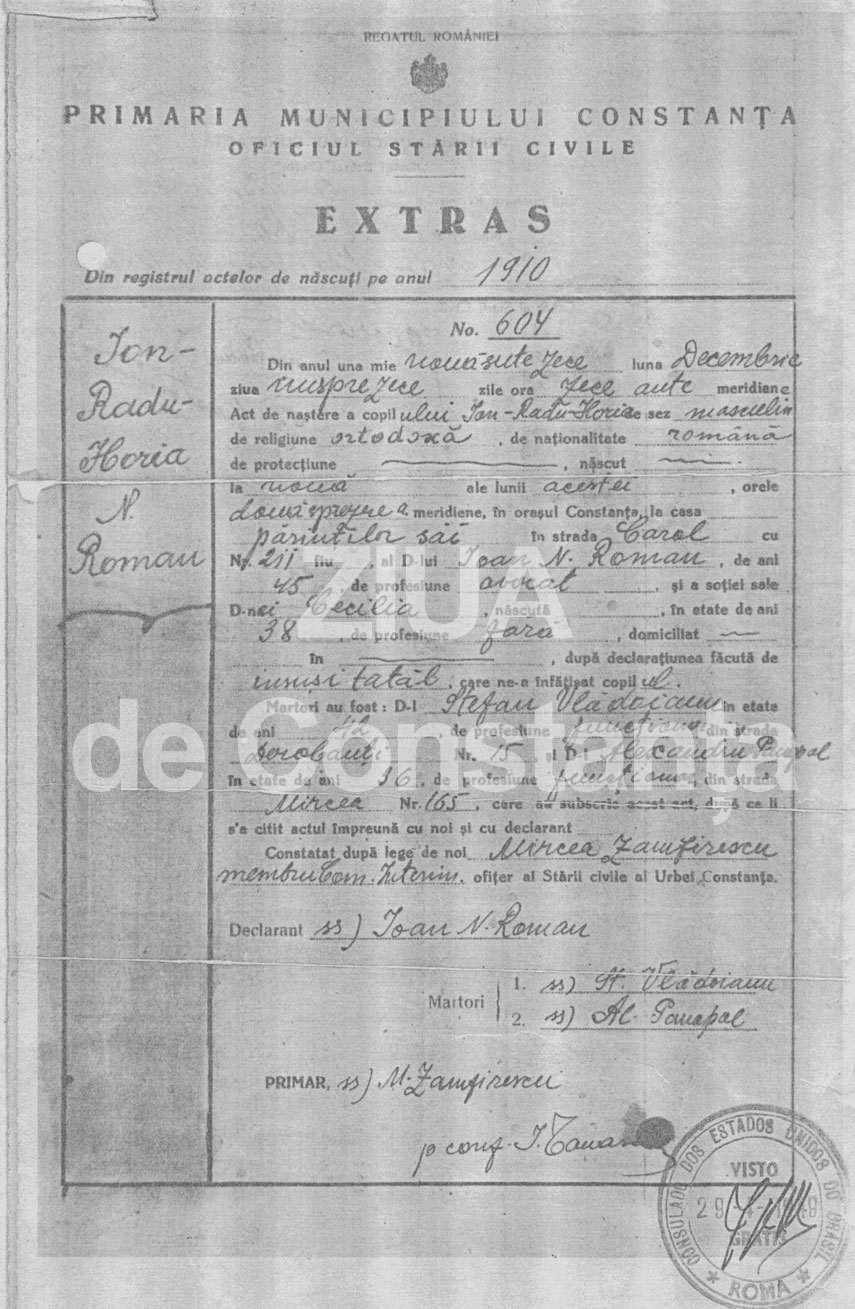 REGATUL ROMÂNIEI
PRIMARIA MUNICIPIULUI CONSTANȚA
OFICIUL STĂRII CIVILE
EXTRAS
Din registrul actelor de născuți pe anul 1910
Ion-
Radu-
Horia
N.
Roman
No. 604
Din anul una mie nouăsute zece luna Decembrie
ziua unsprezece zile ora zece ante meridiane
Act de naștere a copilului Ion-Radu-Horia de sex masculin
de religiune ortodoxă, de naționalitate română
de protecțiune, născut
la nouă ale lunii acestei, orele
douăsprezece a meridiene, în orașul Constanța, la casa
părinților săi în strada Carol cu
Nr. 211 fiu, al D-lui Ioan N. Roman, de ani
45, de profesiune avocat, și a soției sale
D-nei Cecilia, născută, în etate de ani
38, de profesiune fără, domiciliat
în, după declarațiunea făcută de
însuși tatăl, care ne-a înfățișat copilul.
Martori au fost: D-l Stefan Vlădoianu în etate
de ani 42, de profesiune funcționar din strada
Dorobanți Nr. 15, și D-l Alexandru Panapal
în etate de ani 36, de profesiune funcționar, din strada
Mircea Nr. 165, care au subscris acest act, după ce li
s'a citit actul împreună cu noi și cu declarant
Constatat după lege de noi Mircea Zamfirescu
membru Com. Interim. ofițer al Stării civile al Urbei Constanța.
Declarant ss) Ioan N. Roman
Martori
1. ss) St. Vlădoianu
2. ss) Al. Panapal
PRIMAR, ss) M. Zamfirescu
p conf.
ZIUA
de Constanța
CONSULADO DOS ESTADOS UNIDOS DO BRASIL
VISTO
GRATIS
* ROMA *